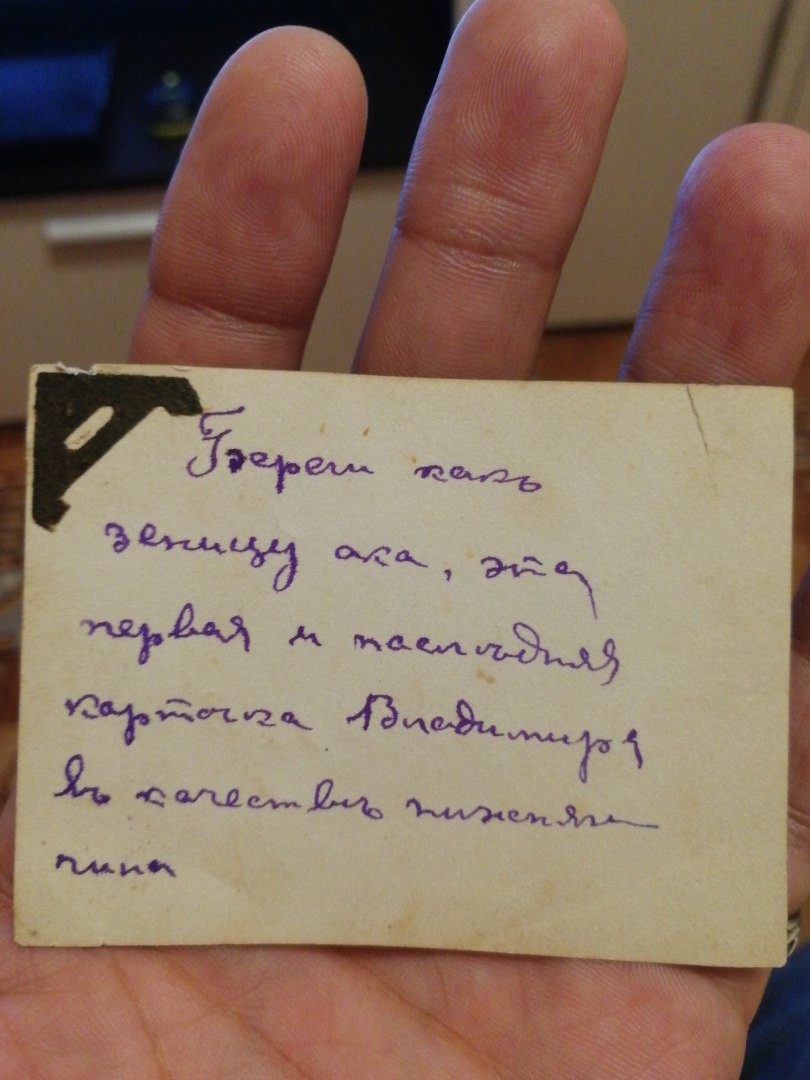 Береги какъ
зеницу ока, эта
первая и послѣдняя
карточка Владимира
въ качествѣ нижняго
чина